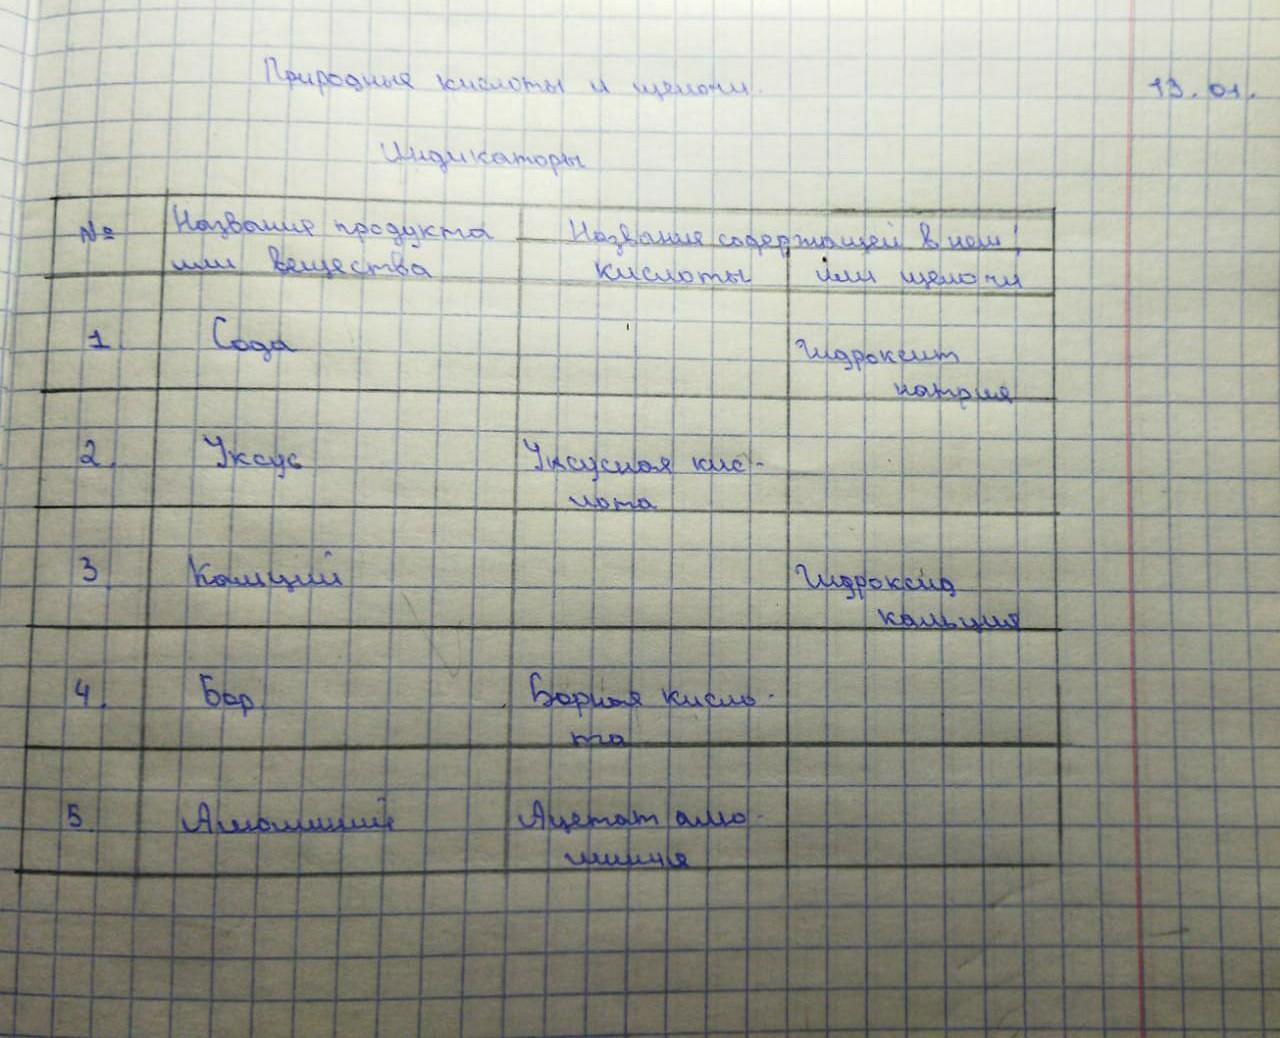 Природные кислоты и щелочи. 13.01.
Индикаторы
№ Название продукта Название содержащей в нем:
или вещества кислоты или щелочи
1. Сода Гидроксит
натрия
2. Уксус Уксусная кис-
лота
3. Калций Гидроксид
кальция
4. Бор Борная кисло-
та
5. Алюминий Ацетат алю-
миния